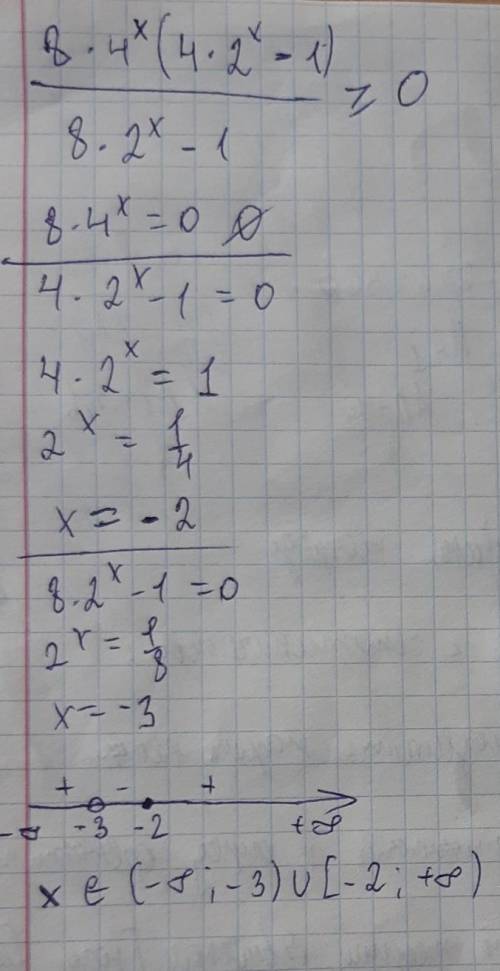 8 · 4^x (4 · 2^x - 1)
≥ 0
8 · 2^x - 1
8 · 4^x = 0 ∅
4 · 2^x - 1 = 0
4 · 2^x = 1
2^x = 1/4
x = -2
8 · 2^x - 1 = 0
2^x = 1/8
x = -3
+ - +
-∞ -3 -2 +∞
x ∈ (-∞; -3) ∪ [-2; +∞)